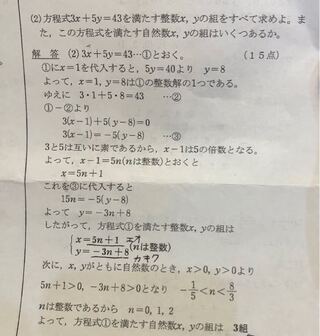 (2)方程式3x+5y=43を満たす整数x, yの組をすべて求めよ。ま
た,この方程式を満たす自然数x, yの組はいくつあるか。
解 答 (2)3x+5y=43…①とおく。 (15点)
①にx=1を代入すると, 5y=40より y=8
よって, x=1, y=8は①の整数解の1つである。
ゆえに 3・1+5・8=43 …②
①-②より
3(x-1)+5(y-8)=0
3(x-1)=-5(y-8) …③
3と5は互いに素であるから, x-1は5の倍数となる。
よって, x-1=5n(nは整数)とおくと
x=5n+1
これを③に代入すると
15n=-5(y-8)
よって y=-3n+8
したがって, 方程式①を満たす整数x, yの組は
x=5n+1 エオ
y=-3n+8 (nは整数)
カキク
次に, x, yがともに自然数のとき, x>0, y>0より
5n+1>0, -3n+8>0となり -1/5<n<8/3
nは整数であるから n=0, 1, 2
よって, 方程式①を満たす自然数x, yの組は 3組